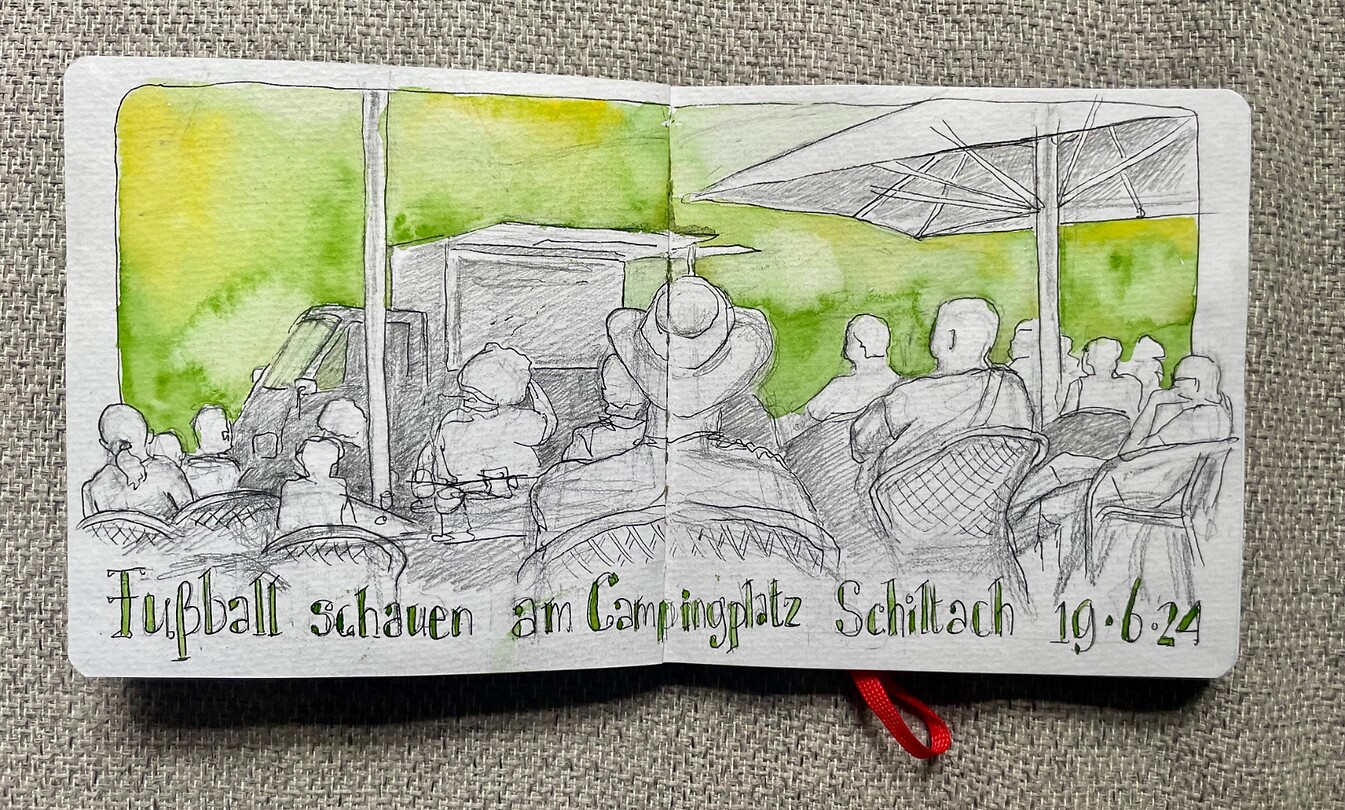 Fußball schauen am Campingplatz Schiltach 19.6.24